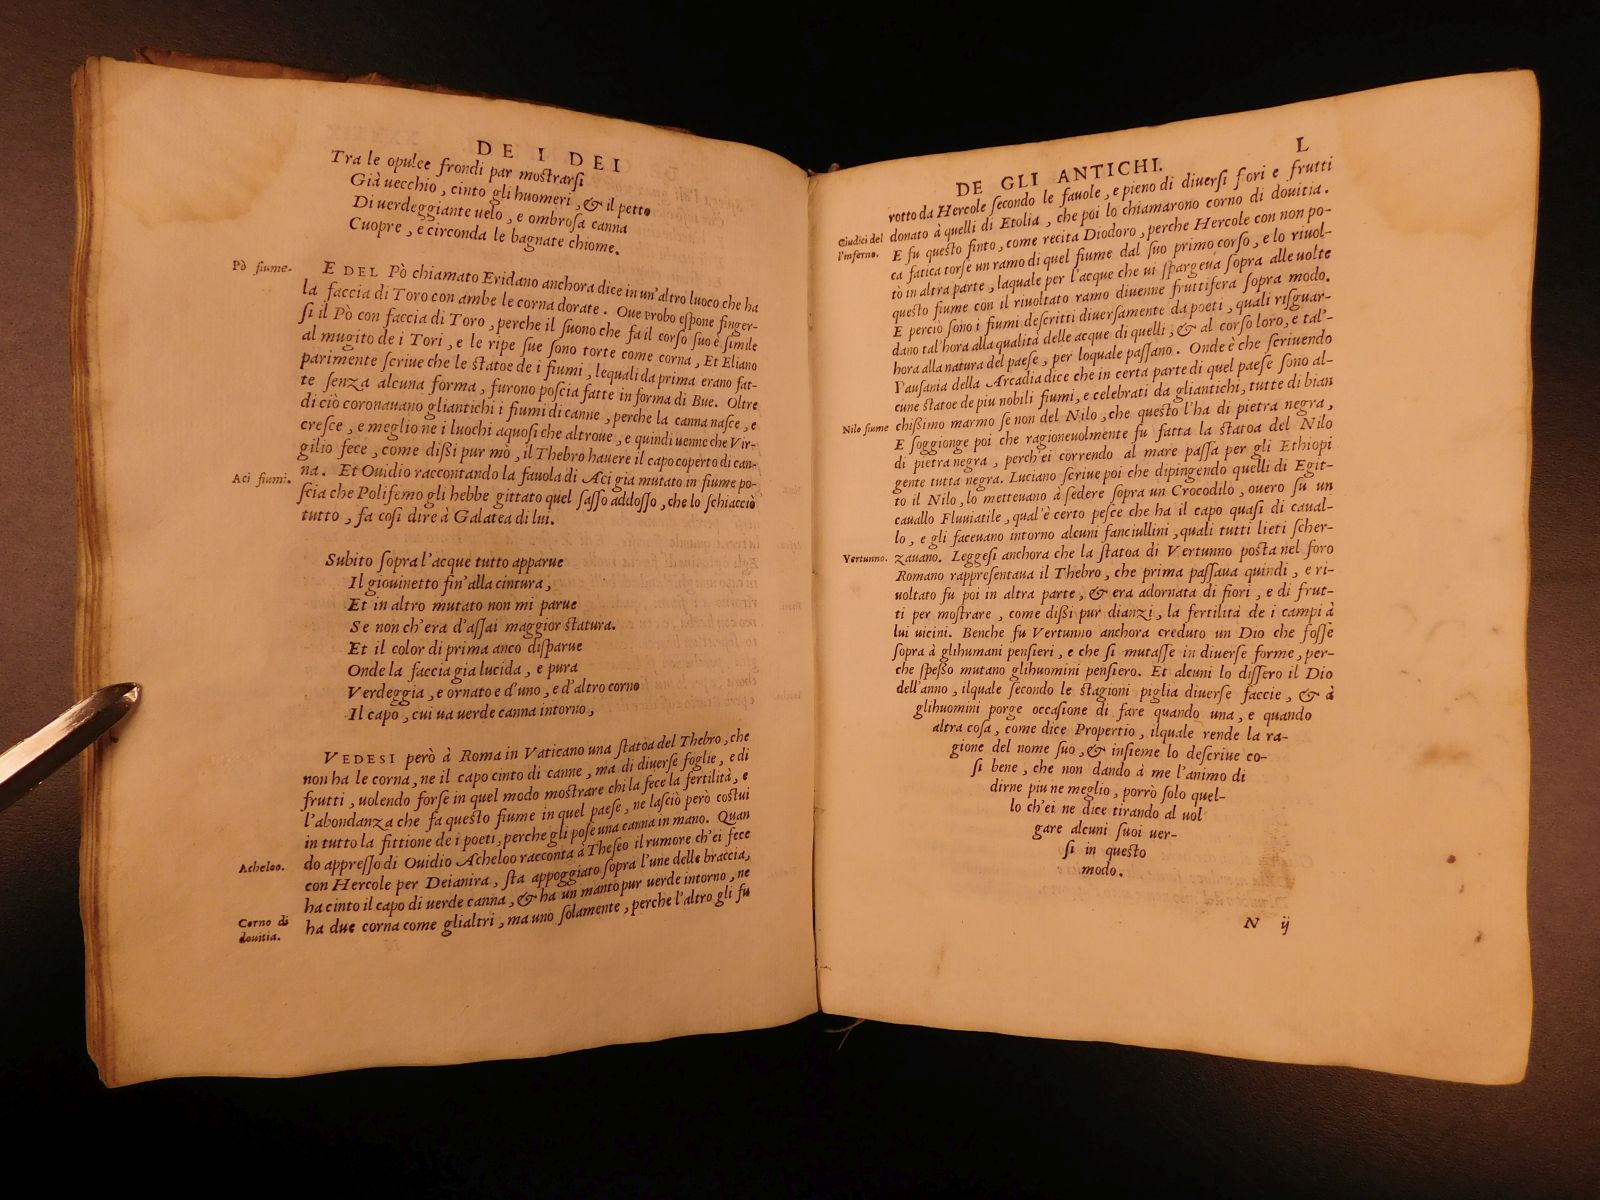 DE I DEI
Tra le opulce frondi par mostrarsi
Già uecchio, cinto gli huomeri, & il petto
Di uerdeggiante uelo, e ombrosa canna
Cuopre, e circonda le bagnate chiome.
Pò fiume.
E DEL Pò chiamato Eridano anchora dice in un'altro luoco che ha
la faccia di Toro con ambe le corna dorate. Oue Probo espone finger-
si il Pò con faccia di Toro, perche il suono che fa il corso suo è simile
al mugito de i Tori, e le ripe sue sono torte come corna, Et Eliano
parimente scriue che le statoe de i fiumi, lequali da prima erano fat-
te senza alcuna forma, furono poscia fatte in forma di Bue. Oltre
di ciò coronauano gliantichi i fiumi di canne, perche la canna nasce, e
cresce, e meglio ne i luochi aquosi che altroue, e quindi uenne che Vir-
gilio fece, come dissi pur mò, il Thebro hauere il capo coperto di can-
Aci fiumi.
na. Et Ouidio raccontando la fauola di Aci gia mutato in fiume po-
scia che Polifemo gli hebbe gittato quel sasso addosso, che lo schiacciò
tutto, fa cosi dire à Galatea di lui.
Subito sopra l'acque tutto apparue
Il giouinetto fin'alla cintura,
Et in altro mutato non mi parue
Se non ch'era d'assai maggior statura.
Et il color di prima anco disparue
Onde la faccia gia lucida, e pura
Verdeggia, e ornato e d'uno, e d'altro corno
Il capo, cui ua uerde canna intorno,
VEDESI però à Roma in Vaticano una statoa del Thebro, che
non ha le corna, ne il capo cinto di canne, ma di diuerse foglie, e di
frutti, uolendo forse in quel modo mostrare chi la fece la fertilità, e
l'abondanza che fa questo fiume in quel paese, ne lasciò però costui
in tutto la fittione de i poeti, perche gli pose una canna in mano. Quan
Acheloo.
do appresso di Ouidio Acheloo racconta à Theseo il rumore ch'ei fece
con Hercole per Deianira, sta appoggiato sopra l'une delle braccia,
ha cinto il capo di uerde canna, & ha un manto pur uerde intorno, ne
Corno di
douitia.
ha due corna come glialtri, ma uno solamente, perche l'altro gli fu
DE GLI ANTICHI.
L
rotto da Hercole secondo le fauole, e pieno di diuersi fiori e frutti
Giudici del
l'inferno.
donato à quelli di Etolia, che poi lo chiamarono corno di douitia.
E fu questo finto, come recita Diodoro, perche Hercole con non po-
ca fatica torse un ramo di quel fiume dal suo primo corso, e lo riuol-
tò in altra parte, laquale per l'acque che ui spargeua sopra alle uolte
questo fiume con il riuoltato ramo diuenne fruttifera sopra modo.
E perciò sono i fiumi descritti diuersamente da poeti, quali risguar-
dano tal'hora alla qualità delle acque di quelli, & al corso loro, e tal'-
hora alla natura del paese, per loquale passano. Onde è che scriuendo
Pausania della Arcadia dice che in certa parte di quel paese sono al-
cune statoe de piu nobili fiumi, e celebrati da gliantichi, tutte di bian
Nilo fiume
chissimo marmo se non del Nilo, che questo l'ha di pietra negra,
E soggionge poi che ragioneuolmente fu fatta la statoa del Nilo
di pietra negra, perch'ei correndo al mare passa per gli Ethiopi
gente tutta negra. Luciano scriue poi che dipingendo quelli di Egit-
to il Nilo, lo metteuano à sedere sopra un Crocodilo, ouero su un
cauallo Fluuiatile, qual'è certo pesce che ha il capo quasi di caual-
lo, e gli faceuano intorno alcuni fanciullini, quali tutti lieti scher-
Vertunno.
zauano. Leggesi anchora che la statoa di Vertunno posta nel foro
Romano rappresentaua il Thebro, che prima passaua quindi, e ri-
uoltato fu poi in altra parte, & era adornata di fiori, e di frut-
ti per mostrare, come dissi pur dianzi, la fertilità de i campi à
lui uicini. Benche fu Vertunno anchora creduto un Dio che fosse
sopra à glihumani pensieri, e che si mutasse in diuerse forme, per-
che spesso mutano glihuomini pensiero. Et alcuni lo dissero il Dio
dell'anno, ilquale secondo le stagioni piglia diuerse faccie, & à
glihuomini porge occasione di fare quando una, e quando
altra cosa, come dice Propertio, ilquale rende la ra-
gione del nome suo, & insieme lo descriue co-
si bene, che non dando à me l'animo di
dirne piu ne meglio, porrò solo quel-
lo ch'ei ne dice tirando al uol
gare alcuni suoi uer-
si in questo
modo.
N ij